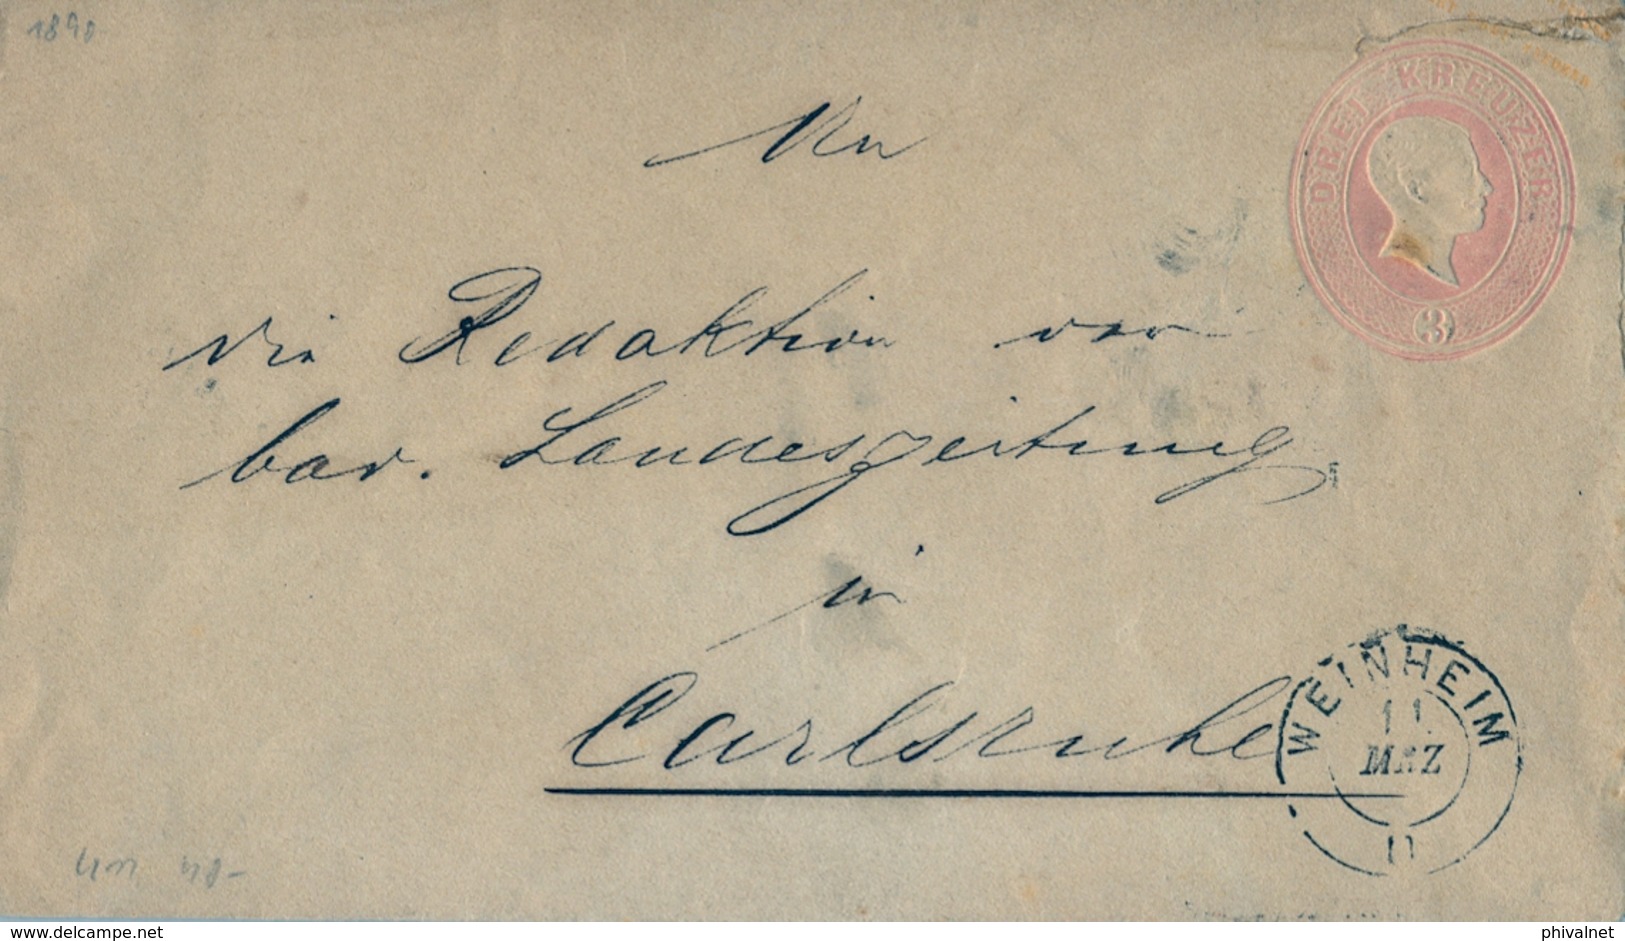 1890
An
DREI KREUZER
3
die Redaktion der
bad. Landeszeitung
in
Carlsruhe
WEINHEIM
11
MRZ
delcampe.net
phivalnet